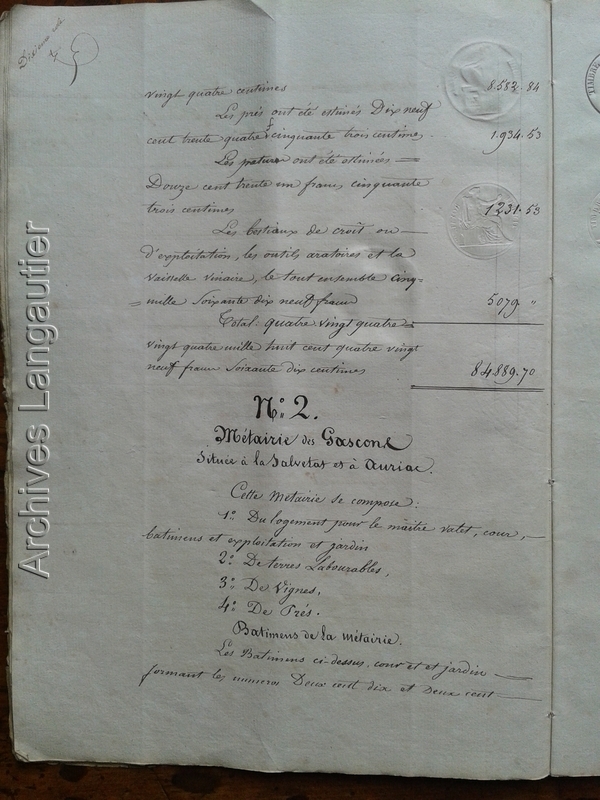 vingt quatre centimes 8.582.84
Les prés ont été estimés Dix neuf
cent trente quatre f cinquante trois centimes 1.934.53
Les patures ont été estimées
Douze cent trente un francs cinquante
trois centimes 1231.53
Les Bestiaux de croit ou
d'exploitation, les outils aratoires et la
vaisselle vinaire, le tout ensemble cinq=
=mille soixante dix neuf francs 5079 "
Total: quatre vingt quatre
vingt quatre mille huit cent quatre vingt
neuf francs soixante dix centimes 84889.70
N.o 2.
Métairie des Gascons
située à la Salvetat et à Auriac.
Cette Métairie se compose:
1.o Du logement pour le maître valet, cour,
batimens et exploitation et jardin
2.o De terres Labourables,
3.o De Vignes,
4.o De Prés.
Batimens de la Métairie.
Les Batimens ci-dessus, cour et et jardin
formant les numeros Deux cent dix et Deux cent
Archives Langautier
TIMBRE